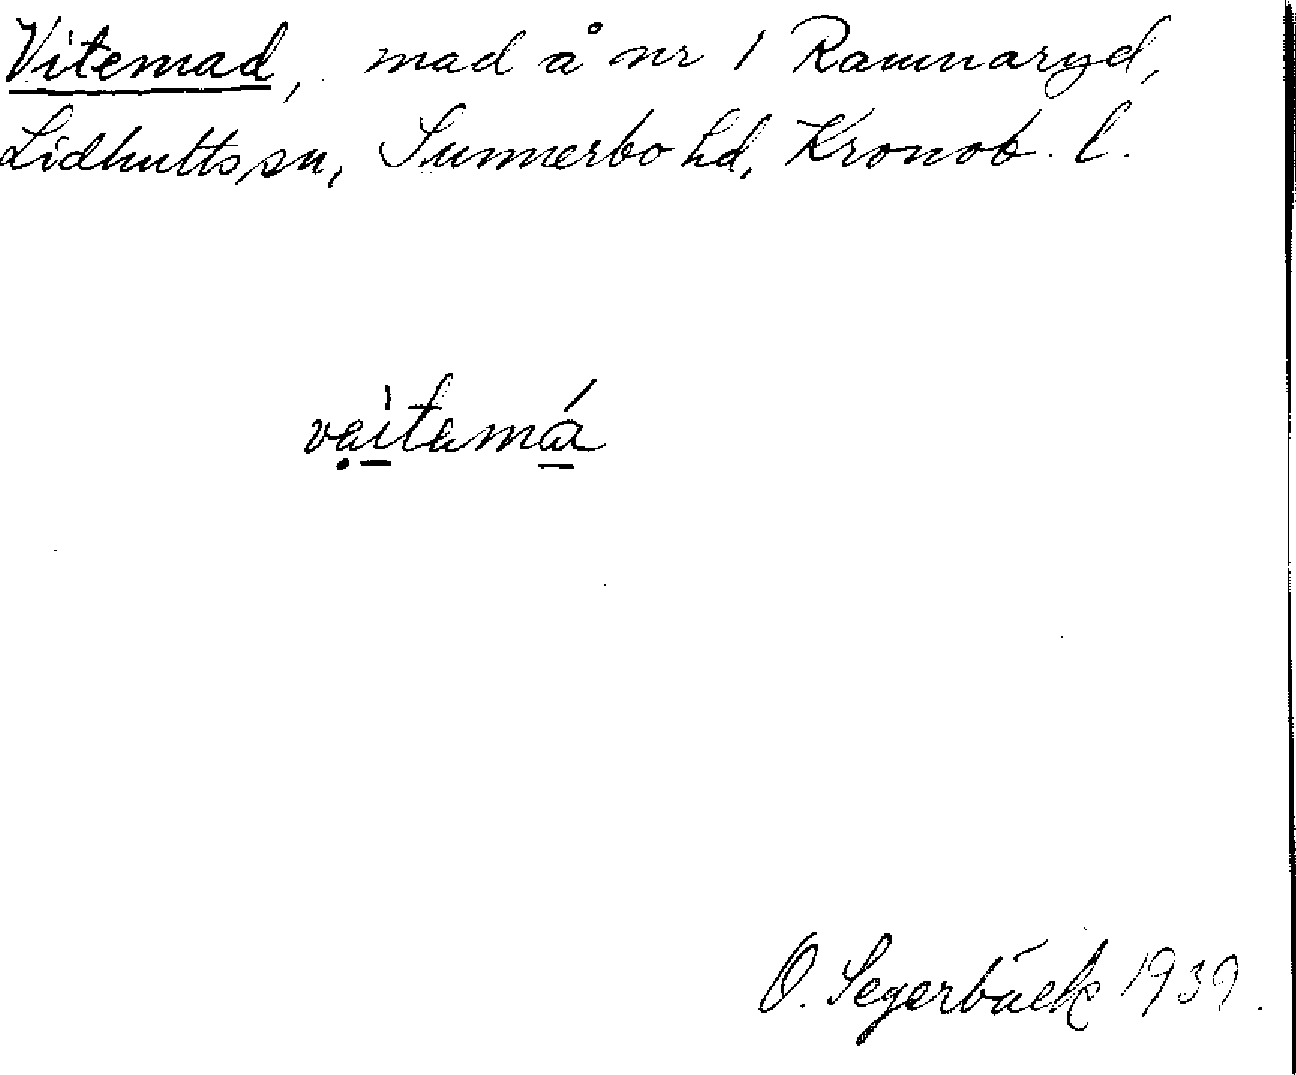 Vitemad, mad å nr 1 Ramnaryd,
Lidhultssn, Sunnerbo hd, Kronob. l.
vaitamá
O. Segerbäck 1939.